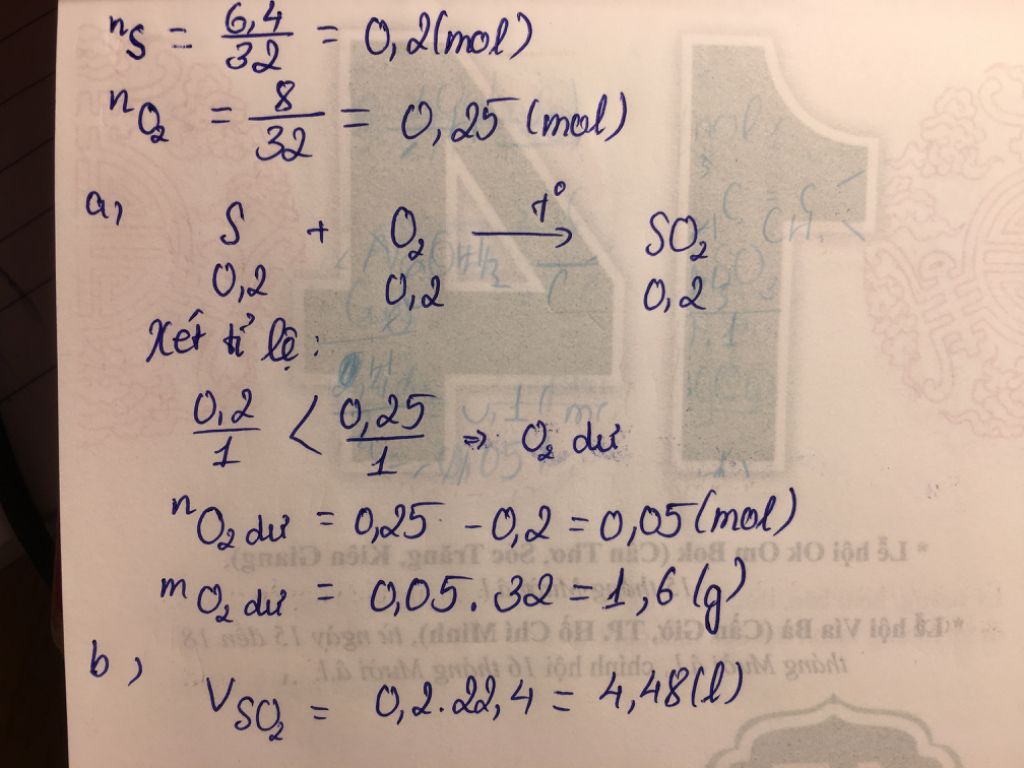 nS = 6,4/32 = 0,2 (mol)
nO2 = 8/32 = 0,25 (mol)
a, S + O2 →(t°) SO2
0,2 0,2 0,2
Xét tỉ lệ:
0,2/1 < 0,25/1 ⇒ O2 dư
nO2 dư = 0,25 - 0,2 = 0,05 (mol)
mO2 dư = 0,05 . 32 = 1,6 (g)
* Lễ hội Ok Om Bok (Cần Thơ, Sóc Trăng, Kiên Giang),
* Lễ hội Vía Bà (Cần Giờ, TP. Hồ Chí Minh), từ ngày 15 đến 18
tháng Mười â.l., chính hội 16 tháng Mười â.l.
b, VSO2 = 0,2 . 22,4 = 4,48 (l)